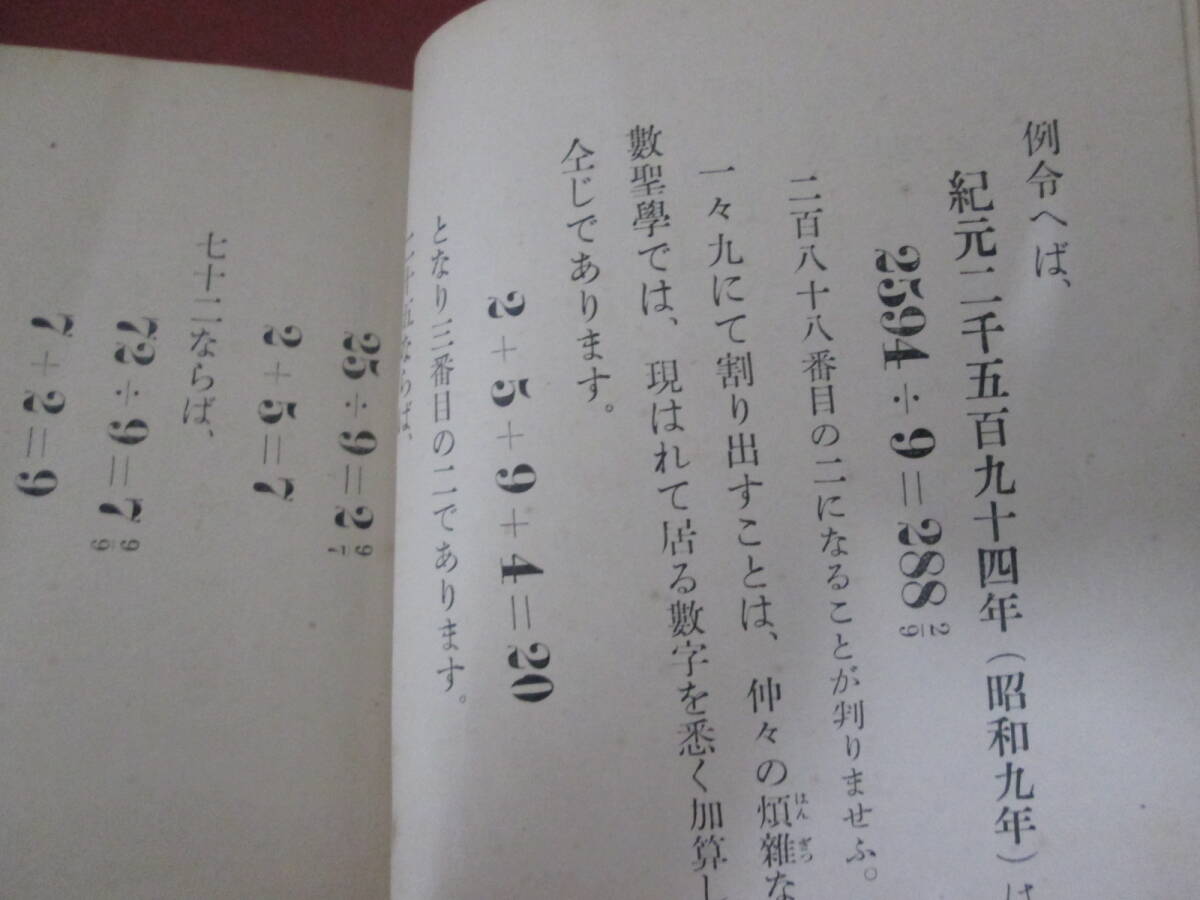 例令へば、
紀元二千五百九十四年（昭和九年）は
2594÷9=288 2/9
二百八十八番目の二になることが判りませふ。
一々九にて割り出すことは、仲々の煩雜な
はん ざつ
數聖學では、現はれて居る數字を悉く加算し
仝じであります。
2+5+9+4=20
となり三番目の二であります。
二十五ならば、
25÷9=2 7/9
2+5=7
七十二ならば、
72÷9=7 9/9
7+2=9